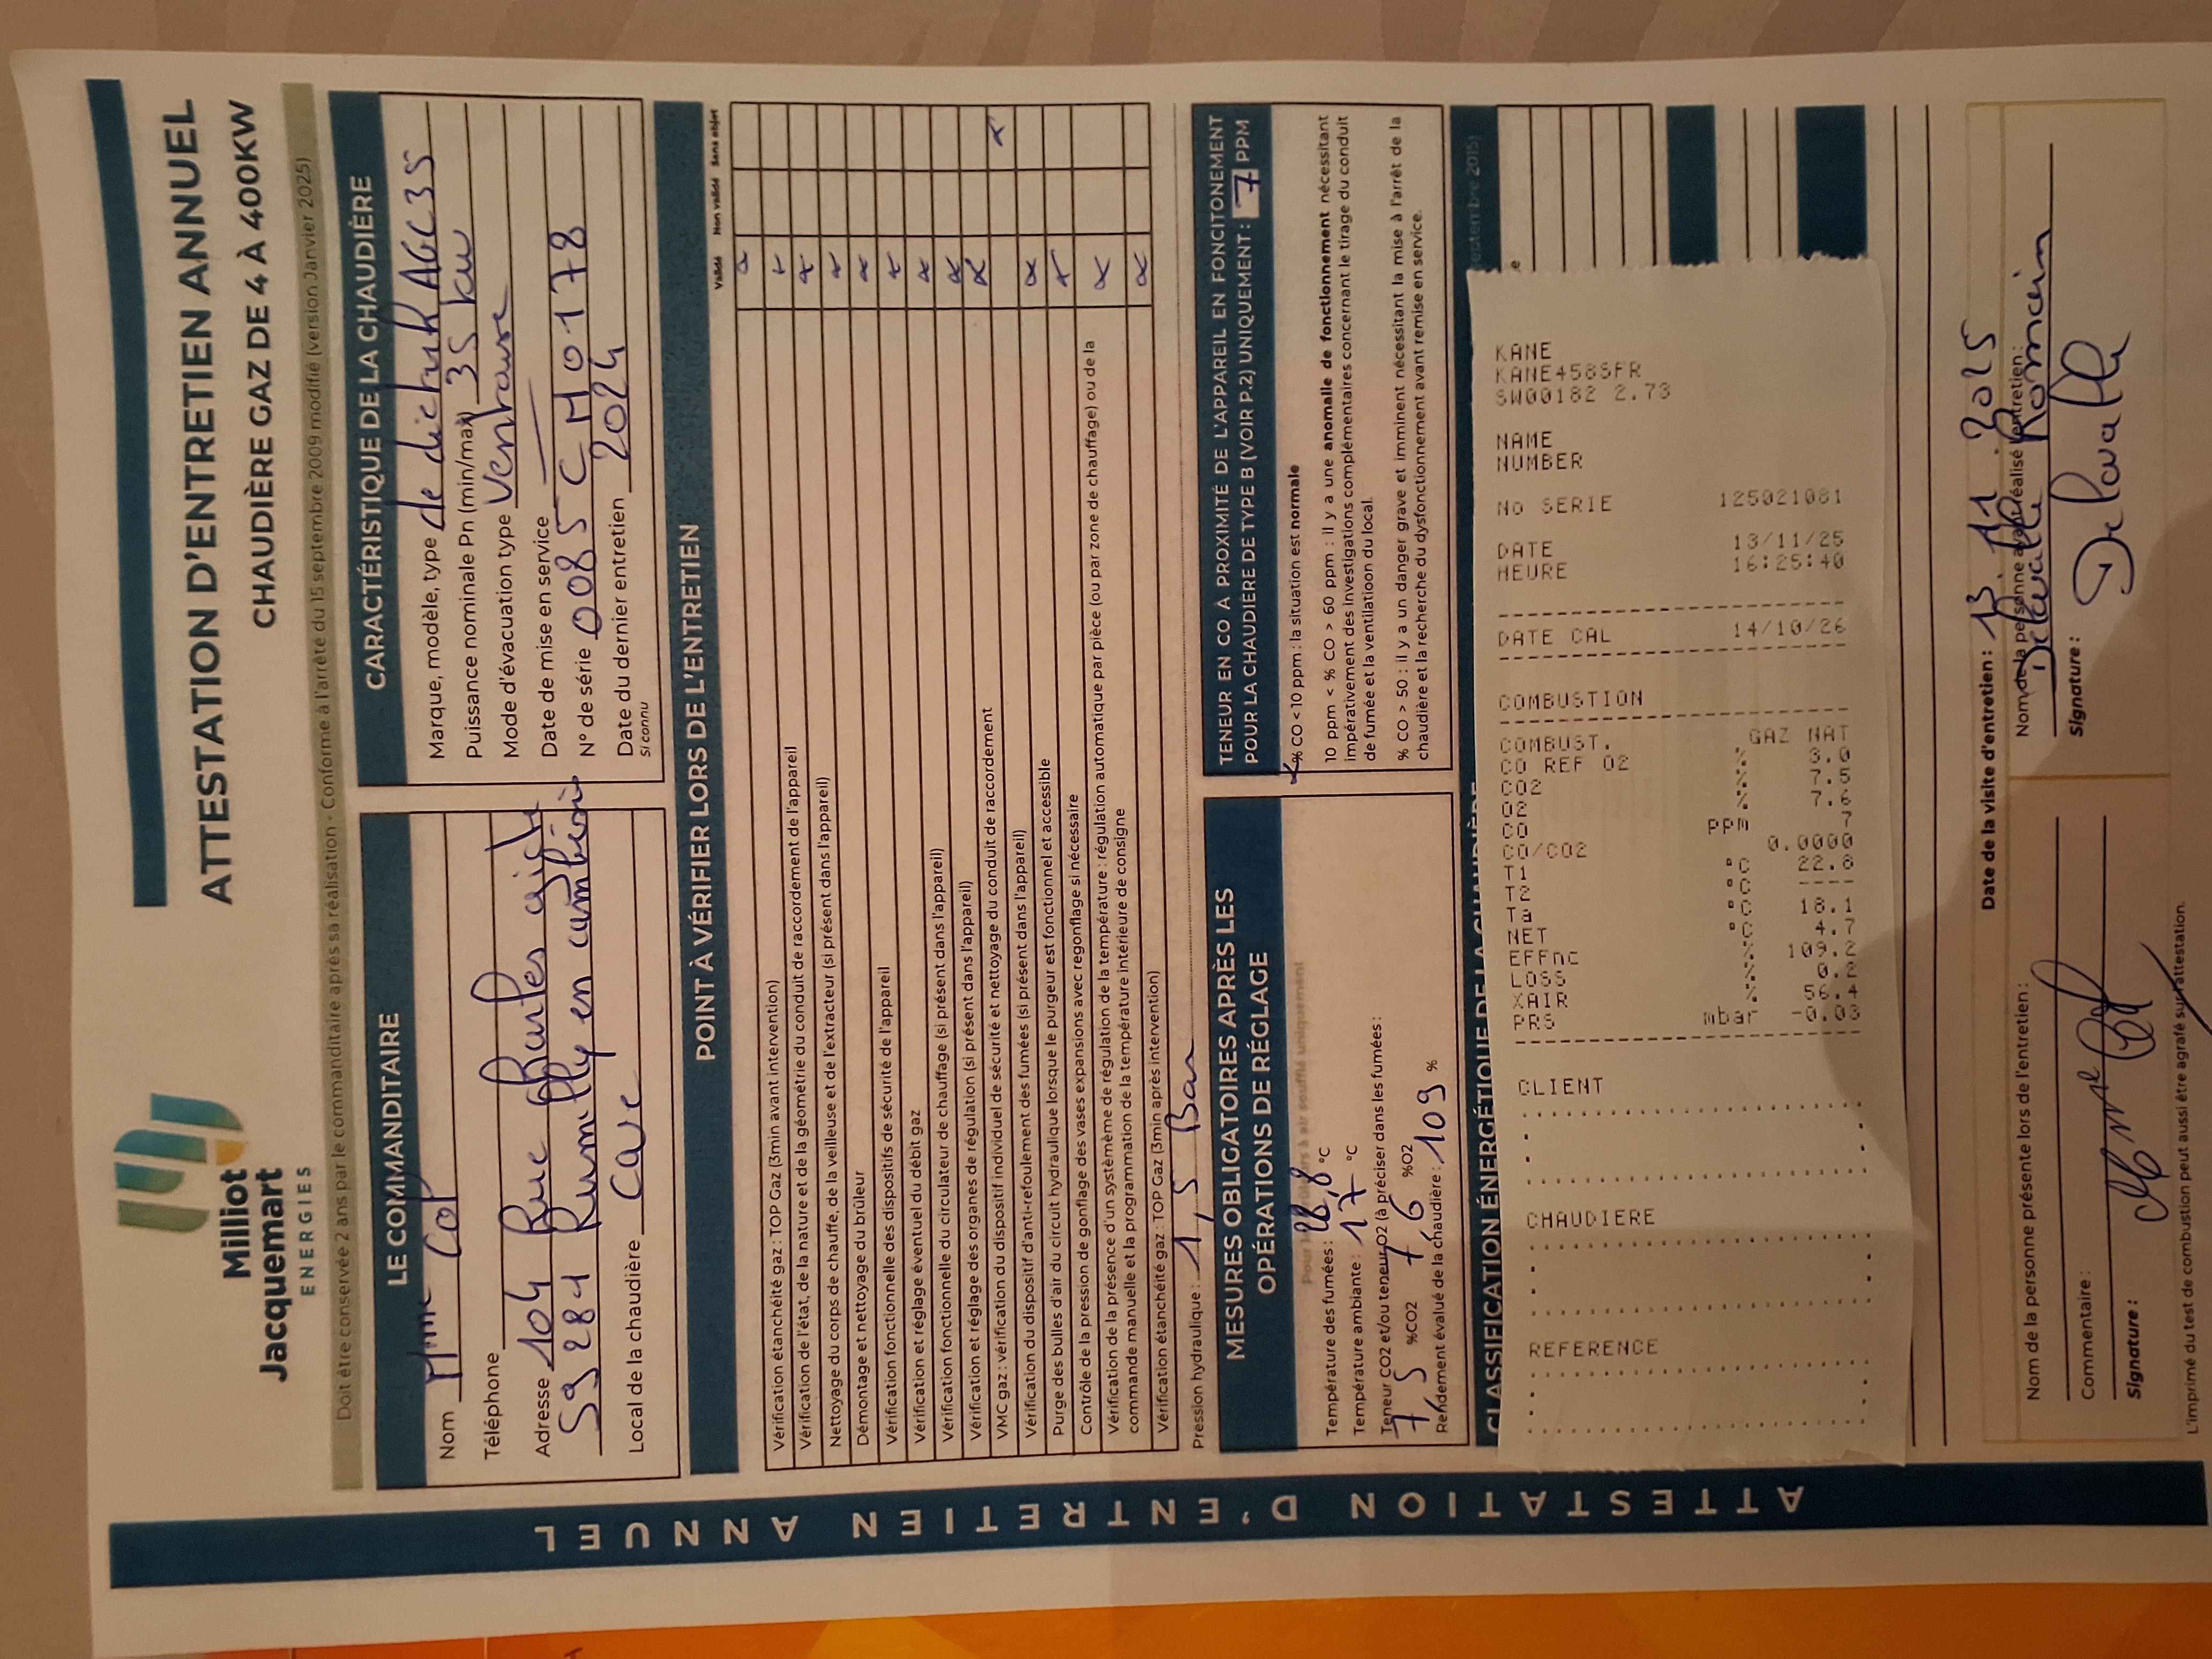 Milliot
Jacquemart
ENERGIES
ATTESTATION D'ENTRETIEN ANNUEL
CHAUDIÈRE GAZ DE 4 À 400KW
Doit être conservée 2 ans par le commanditaire après sa réalisation - Conforme à l'arrêté du 15 septembre 2009 modifié (version Janvier 2025)
ATTESTATION D'ENTRETIEN ANNUEL
LE COMMANDITAIRE
Nom Mme Cop
Téléphone
Adresse 104 Rue Charles
59281 Rumilly en cambrésis
Local de la chaudière Cave
CARACTÉRISTIQUE DE LA CHAUDIÈRE
Marque, modèle, type de dietrich AGC35
Puissance nominale Pn (min/max) 35 kw
Mode d'évacuation type Ventouse
Date de mise en service
N° de série 0085CM0178
Date du dernier entretien 2024
Si connu
POINT À VÉRIFIER LORS DE L'ENTRETIEN
Validé Non validé Sans objet
Vérification étanchéité gaz : TOP Gaz (3min avant intervention)
Vérification de l'état, de la nature et de la géométrie du conduit de raccordement de l'appareil
Nettoyage du corps de chauffe, de la veilleuse et de l'extracteur (si présent dans l'appareil)
Démontage et nettoyage du brûleur
Vérification fonctionnelle des dispositifs de sécurité de l'appareil
Vérification et réglage éventuel du débit gaz
Vérification fonctionnelle du circulateur de chauffage (si présent dans l'appareil)
Vérification et réglage des organes de régulation (si présent dans l'appareil)
VMC gaz : vérification du dispositif individuel de sécurité et nettoyage du conduit de raccordement
Vérification du dispositif d'anti-refoulement des fumées (si présent dans l'appareil)
Purge des bulles d'air du circuit hydraulique lorsque le purgeur est fonctionnel et accessible
Contrôle de la pression de gonflage des vases expansions avec regonflage si nécessaire
Vérification de la présence d'un systèmème de régulation de la température : régulation automatique par pièce (ou par zone de chauffage) ou de la
commande manuelle et la programmation de la température intérieure de consigne
Vérification étanchéité gaz : TOP Gaz (3min après intervention)
Pression hydraulique : 1,5 Bar
MESURES OBLIGATOIRES APRÈS LES
OPÉRATIONS DE RÉGLAGE
Pour les brûleurs à air soufflé uniquement
Température des fumées : 22,8 °C
Température ambiante : 17 °C
Teneur CO2 et/ou teneur O2 (à préciser dans les fumées :
7,5 %CO2 7,6 %O2
Rendement évalué de la chaudière : 109 %
TENEUR EN CO À PROXIMITÉ DE L'APPAREIL EN FONCITONEMENT
POUR LA CHAUDIÈRE DE TYPE B (VOIR P.2) UNIQUEMENT : 7 PPM
% CO < 10 ppm : la situation est normale
10 ppm < % CO > 60 ppm : il y a une anomalie de fonctionnement nécessitant
impérativement des investigations complémentaires concernant le tirage du conduit
de fumée et la ventilatioon du local.
% CO > 50 : il y a un danger grave et imminent nécessitant la mise à l'arrêt de la
chaudière et la recherche du dysfonctionnement avant remise en service.
CLASSIFICATION ÉNERGÉTIQUE DE LA CHAUDIÈRE
septembre 2015)
KANE
KANE458SFR
SW00182 2.73
NAME
NUMBER
No SERIE 125021081
DATE 13/11/25
HEURE 16:25:40
DATE CAL 14/10/26
COMBUSTION
COMBUST. GAZ NAT
CO REF O2 % 3.0
CO2 % 7.5
O2 % 7.6
CO ppm 7
CO/CO2 0.0000
T1 °C 22.8
T2 °C ----
Ta °C 18.1
NET °C 4.7
EFFnc % 109.2
LOSS % 0.2
XAIR % 56.4
PRS mbar -0.03
CLIENT
CHAUDIERE
REFERENCE
Date de la visite d'entretien : 13.11.2025
Nom de la personne présente lors de l'entretien :
Commentaire :
Signature :
Nom de la personne ayant réalisé l'entretien :
Delavalle Romain
Signature :
Delavalle
L'imprimé du test de combustion peut aussi être agrafé sur l'attestation.